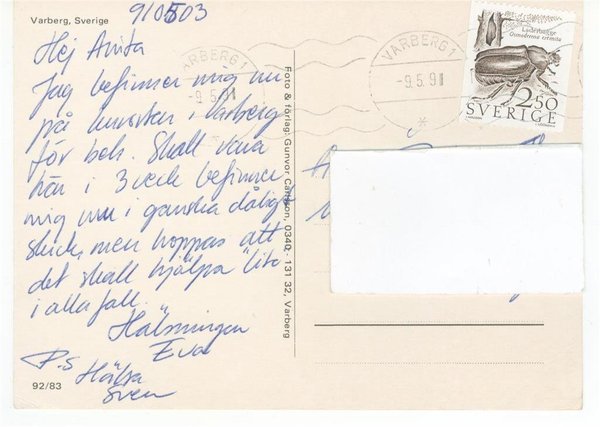 Varberg, Sverige
9/0503
Hej Anita
Jag befinner mig nu
på kurorten i Varberg
för beh. Skall vara
här i 3 veck befinner
mig nu i ganska dåligt
skick, men hoppas att
det skall hjälpa "lite
i alla fall.
Hälsningen
Eva
P.S
Hälsa
Sven
92/83
Foto & förlag: Gunvor Carlsson, 0340-131 32, Varberg
VARBERG 1
-9.5.9
VARBERG 1
-9.5.9
Läderbagge
Osmoderma eremita
2.50
SVERIGE